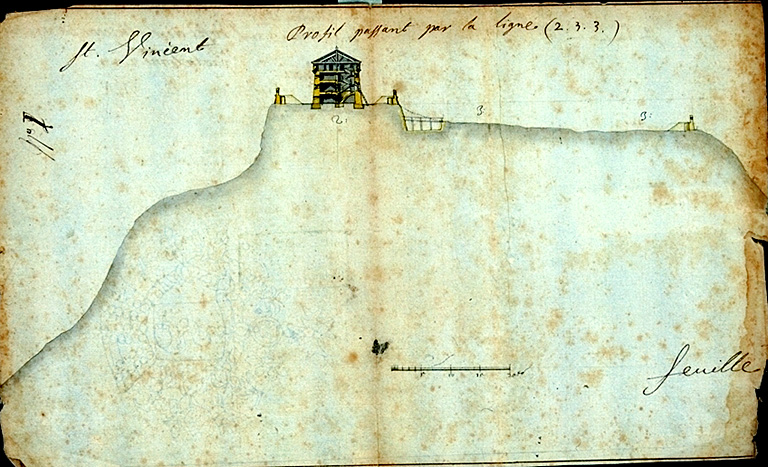 Profil passant par la ligne (2. 3. 3.)
St. Vincent
3.
3.
2.
feuille